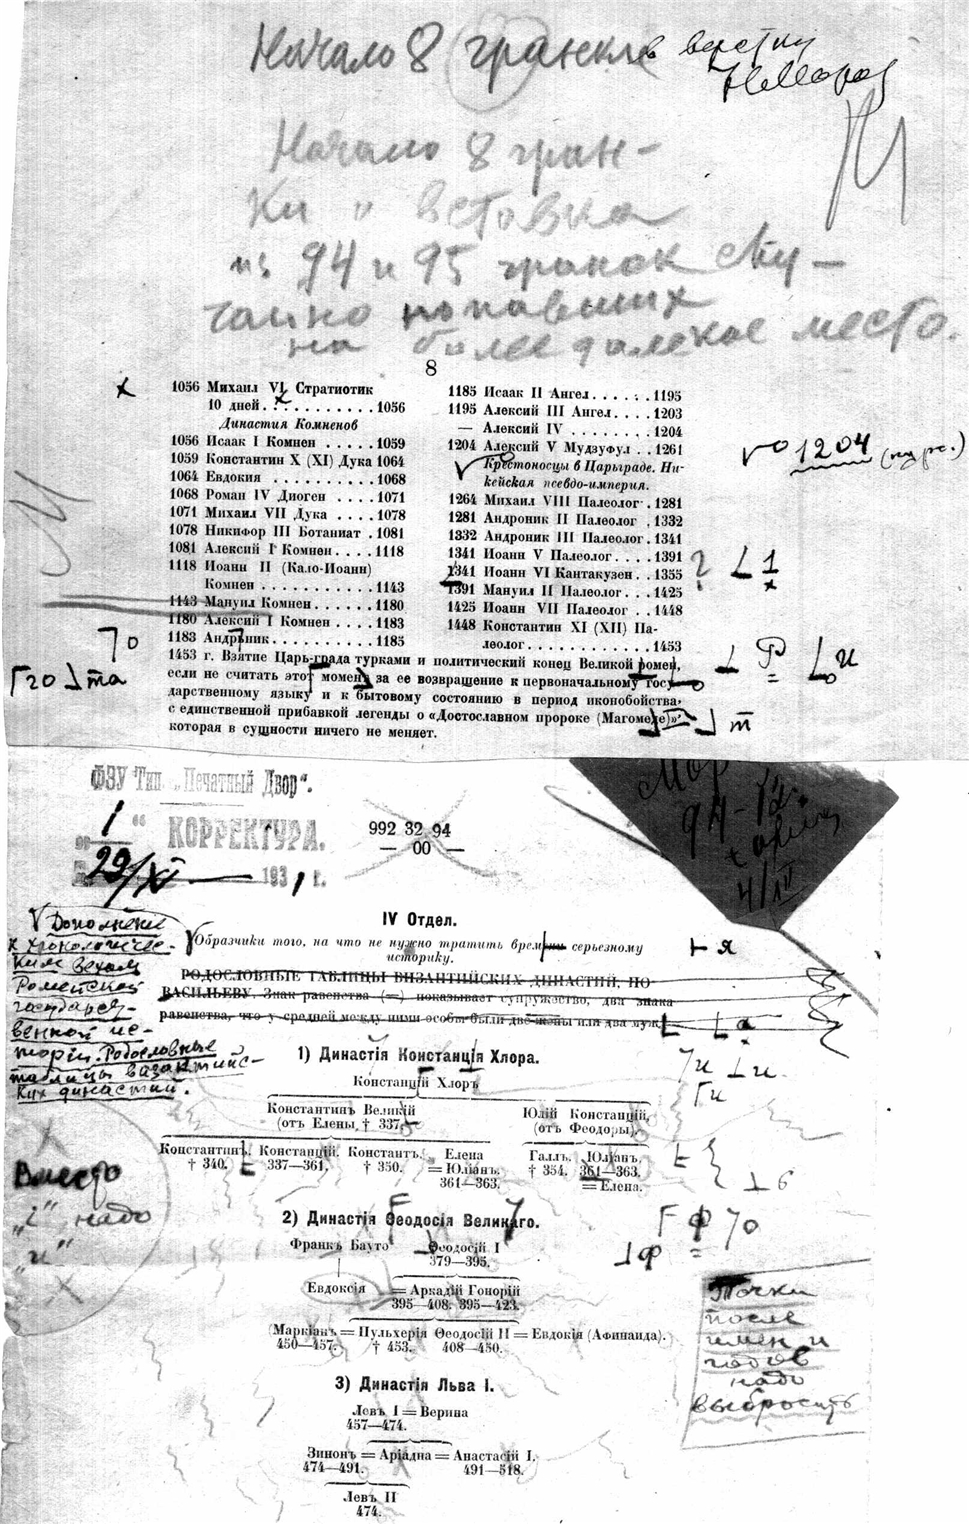 Начало 8 гранки в верстку
Начало 8 гран-
ки " вставка
из 94 и 95 гранок слу-
чайно попавших
на более далекое место.
8
1056 Михаил VI Стратиотик
10 дней . . . . . . . . . . . 1056
Династия Комненов
1056 Исаак I Комнен . . . . . 1059
1059 Константин X (XI) Дука 1064
1064 Евдокия . . . . . . . . . 1068
1068 Роман IV Диоген . . . . 1071
1071 Михаил VII Дука . . . . 1078
1078 Никифор III Ботаниат . 1081
1081 Алексий I Комнен . . . . 1118
1118 Иоанн II (Кало-Иоанн)
Комнен . . . . . . . . . . . 1143
1143 Мануил Комнен . . . . . . 1180
1180 Алексий I Комнен . . . . 1183
1183 Андроник . . . . . . . . . 1185
1185 Исаак II Ангел . . . . . . 1195
1195 Алексий III Ангел . . . . 1203
— Алексий IV . . . . . . . . 1204
1204 Алексий V Мудзуфул . . 1261
Крестоносцы в Царьграде. Ни-
кейская псевдо-империя.
1264 Михаил VIII Палеолог . 1281
1281 Андроник II Палеолог . 1332
1332 Андроник III Палеолог . 1341
1341 Иоанн V Палеолог . . . . 1391
1341 Иоанн VI Кантакузен . . 1355
1391 Мануил II Палеолог . . . 1425
1425 Иоанн VII Палеолог . . 1448
1448 Константин XI (XII) Па-
леолог . . . . . . . . . . . . 1453
1204 (курс.)
? 1
о
го та
Р и
т
1453 г. Взятие Царь-града турками и политический конец Великой ромеи,
если не считать этот момен за ее возвращение к первоначальному госу-
дарственному языку и к бытовому состоянию в период иконобойства,
с единственной прибавкой легенды о «Достославном пророке (Магомеде)»,
которая в сущности ничего не меняет.
ФЗУ Тип. „Печатный Двор".
1 "
КОРРЕКТУРА.
29/XI 1931 г.
992 32 94
— 00 —
94-
4/IV
IV Отдел.
Образчики того, на что не нужно тратить времени серьезному
историку.
я
РОДОСЛОВНЫЕ ТАБЛИЦЫ ВИЗАНТИЙСКИХ ДИНАСТИЙ, ПО
ВАСИЛЬЕВУ. Знак равенства (=) показывает супружество, два знака
равенства, что у средней между ними особы были две жены или два мужа
а
Дополнение
к хронологичес-
ким вехам
Ромейской
государст-
венной ис-
тории. Родословные
таблицы византийс-
ких династий.
1) Династія Констанція Хлора.
и и
и
Констанцій Хлоръ
Константинъ Великій
(отъ Елены, † 337.
Юлій Констанцій,
(отъ Феодоры).
Константинъ. Констанцій. Константъ. Елена
† 340. 337—361. † 350. = Юліанъ.
361—363.
Галлъ. Юліанъ,
† 354. 361—363.
= Елена.
6
Вместо
„i" надо
„и"
2) Династія Ѳеодосія Великаго.
ф о
ф
Франкъ Бауто Ѳеодосій I
379—395.
Евдоксія = Аркадій Гонорій
395—408. 395—423.
(Маркіанъ = Пульхерія Ѳеодосій II = Евдокія (Афинаида).
450—457. † 453. 408—450.
Точки
после
имен и
годов
надо
выбросить
3) Династія Льва I.
Левъ I = Верина
457—474.
Зинонъ = Аріадна = Анастасій I.
474—491. 491—518.
Левъ II
474.